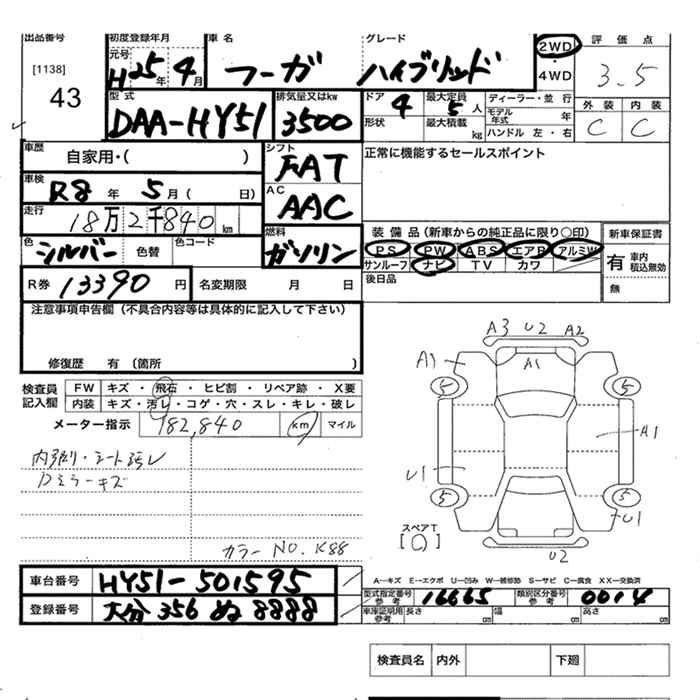 出品番号 初度登録年月 車名 グレード 評価点
[1138] 元号 H25年 4月 フーガ ハイブリッド 2WD・4WD 3.5
43
型式 排気量又はkw ドア 4 最大定員 5人 ディーラー・並行 外装 内装
DAA-HY51 3500 形状 最大積載 kg モデル年式 年 C C
ハンドル 左・右
車歴 自家用・( ) シフト FAT 正常に機能するセールスポイント
車検 R8年 5月( 日) AC AAC
走行 18万2千840km 装備品(新車からの純正品に限り○印) 新車保証書
色 シルバー 色替 色コード 燃料 ガソリン PS PW ABS エアB アルミW 有 車内積込無効
サンルーフ ナビ TV カワ
R券 13390円 名変期限 月 日 後日品 無
注意事項申告欄(不具合内容等は具体的に記入して下さい)
修復歴 有(箇所 )
A3 U2 A2
A1 A1
検査員記入欄 FW キズ・飛石・ヒビ割・リペア跡・X要 5 5
内装 キズ・汚レ・コゲ・穴・スレ・キレ・破レ
メーター指示 182,840 km マイル A1
内張り・シート汚レ U1
Dミラーキズ 5 5
U1
スペアT
[○]
カラーNO. K88 U2
車台番号 HY51-501595 A…キズ E…エクボ U…凹み W…補修跡 S…サビ C…腐食 XX…交換済
型式指定番号参考 16665 類別区分番号参考 0014
登録番号 大分 356 ぬ 8888 車庫証明用参考 長さ cm 幅 cm 高さ cm
検査員名 内外 下廻